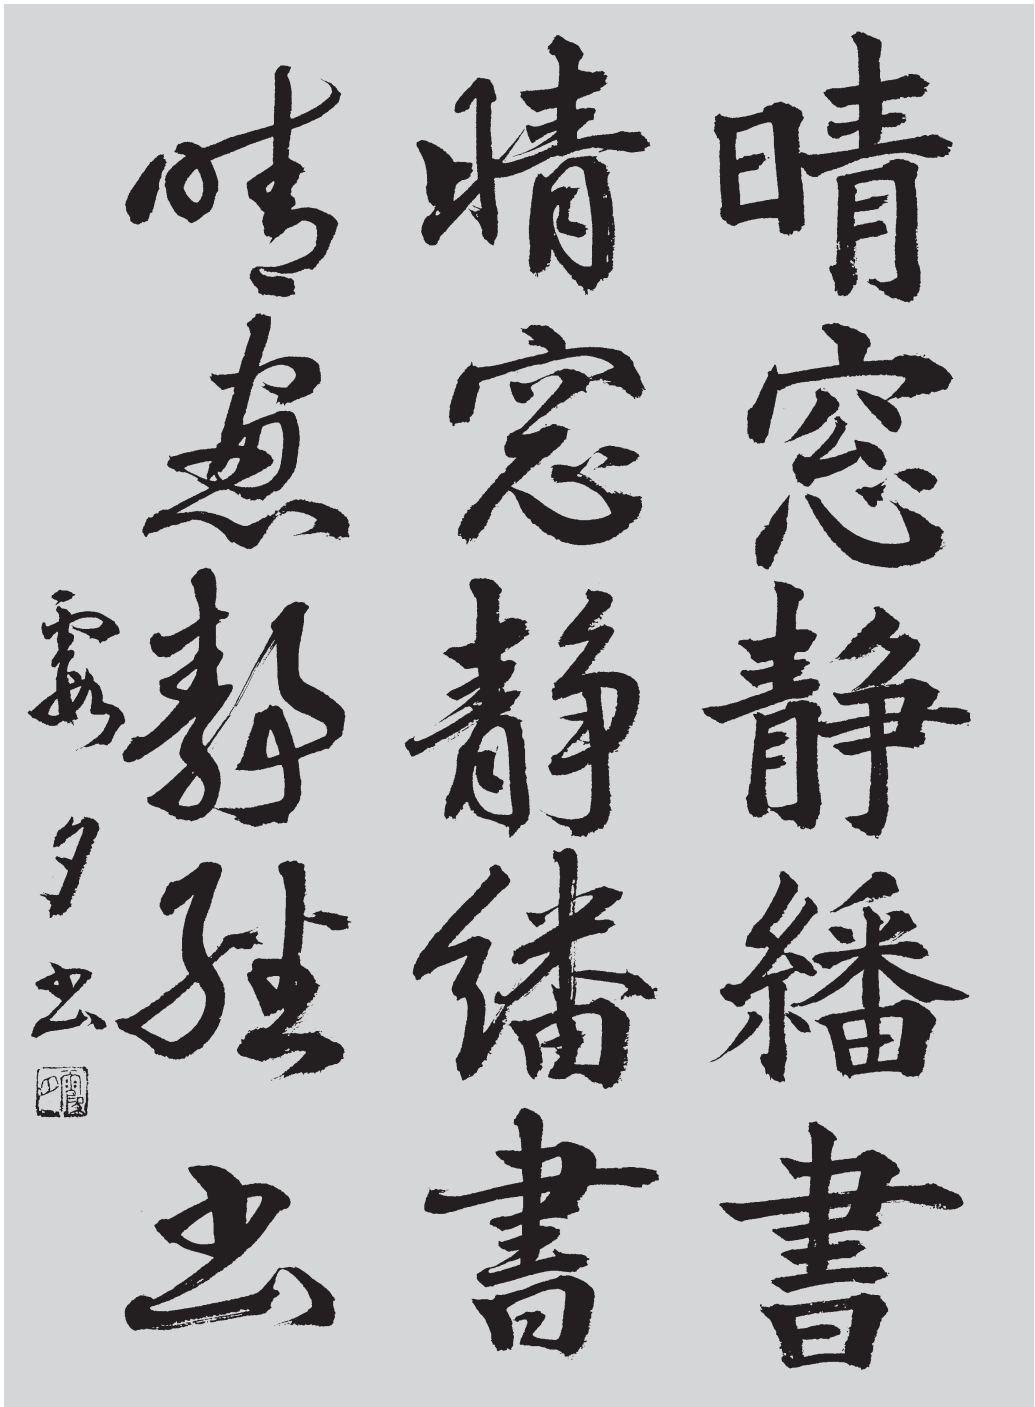 晴窓静繙書
晴窓静繙書
晴窻静繙書
霞夕書